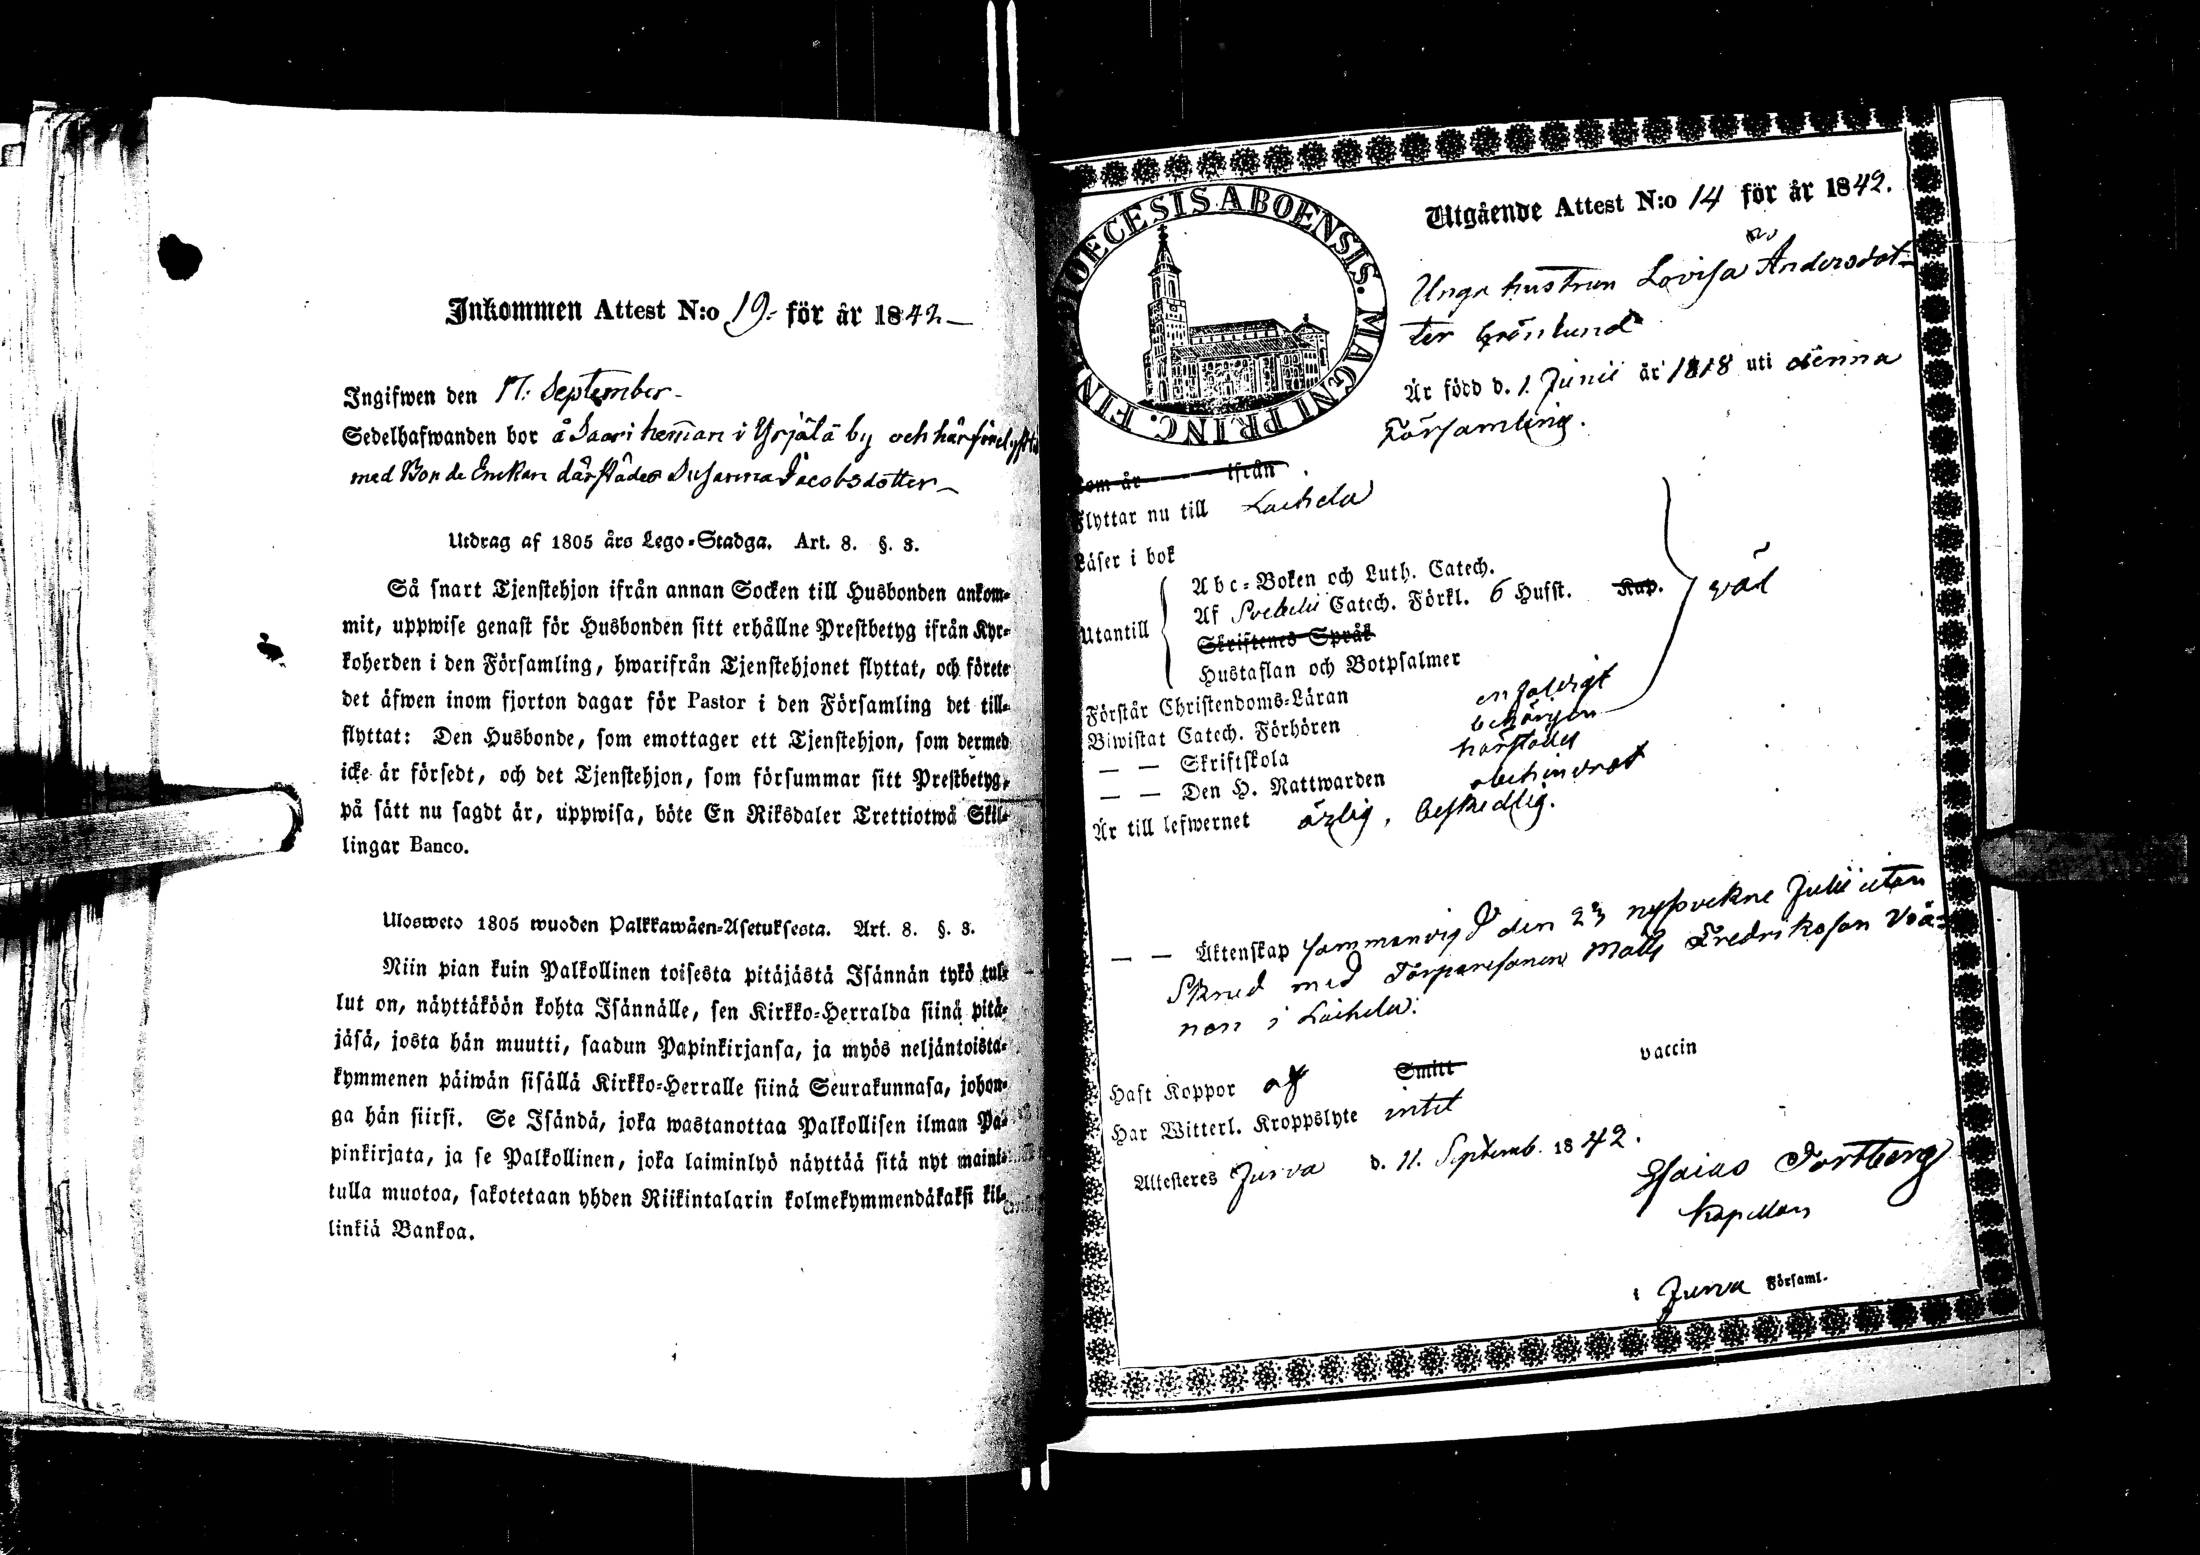 Inkommen Attest N:o 19. för år 1842
Ingifwen den 17. September
Sedelhafwanden bor å Saari hem̄an i Yrjälä by och här förelyst
med Bonde Enckan därstädes Susanna Jacobsdotter
Utdrag af 1805 års Lego-Stadga. Art. 8. §. 3.
Så snart Tjenstehjon ifrån annan Socken till Husbonden ankom-
mit, uppwise genast för Husbonden sitt erhållne Prestbetyg ifrån Kyr-
koherden i den Församling, hwarifrån Tjenstehjonet flyttat, och förete
det äfwen inom fjorton dagar för Pastor i den Församling det till-
flyttat: Den Husbonde, som emottager ett Tjenstehjon, som dermed
icke är försedt, och det Tjenstehjon, som försummar sitt Prestbetyg,
på sätt nu sagdt är, uppwisa, böte En Riksdaler Trettiotwå Skil-
lingar Banco.
Ulosweto 1805 wuoden Palkkawäen-Asetuksesta. Art. 8. §. 3.
Niin pian kuin Palkollinen toisesta pitäjästä Isännän tykö tul-
lut on, näyttäköön kohta Isännälle, sen Kirkko-Herralda siinä pitä-
jäsä, josta hän muutti, saadun Papinkirjansa, ja myös neljäntoista-
kymmenen päiwän sisällä Kirkko-Herralle siinä Seurakunnasa, johon-
ga hän siirsi. Se Isändä, joka wastanottaa Palkollisen ilman Pa-
pinkirjata, ja se Palkollinen, joka laiminlyö näyttää sitä nyt maini-
tulla muotoa, sakotetaan yhden Riikintalarin kolmekymmendäkaksi kil-
linkiä Bankoa.
DIOECESIS ABOENSIS. MAGNI PRINC. FIN
Utgående Attest N:o 14 för år 1842.
Unga hustrun Lovisa Andersdot-
ter Grönlund
Är född d. 1. Junii år 1818 uti denna
Församling.
Kom år ifrån
Flyttar nu till Laihela
Läser i bok
Abc-Boken och Luth. Catech.
Af Svebelii Catech. Förkl. 6 Hufst. Kap.
väl
Utantill
Skriftenes Språk
Hustaflan och Botpsalmer
Förstår Christendoms-Läran enfaldigt
Biwistat Catech. Förhören behörigen
— — Skriftskola härstädes
— — Den H. Nattwarden obehindrat
Är till lefwernet ärlig, beskedlig.
— — Äktenskap sammanvigd den 23 nyssvekne Julii utan
Skrud med Torparesonen Matts Fredriksson Voä-
nen i Laihela.
Haft Koppor af Smitt vaccin
Har Witterl. Kroppslyte intet
Attesteres Jurva d. 11. Septemb. 1842.
Esaias Fortberg
Kapellan
i Jurva Församl.